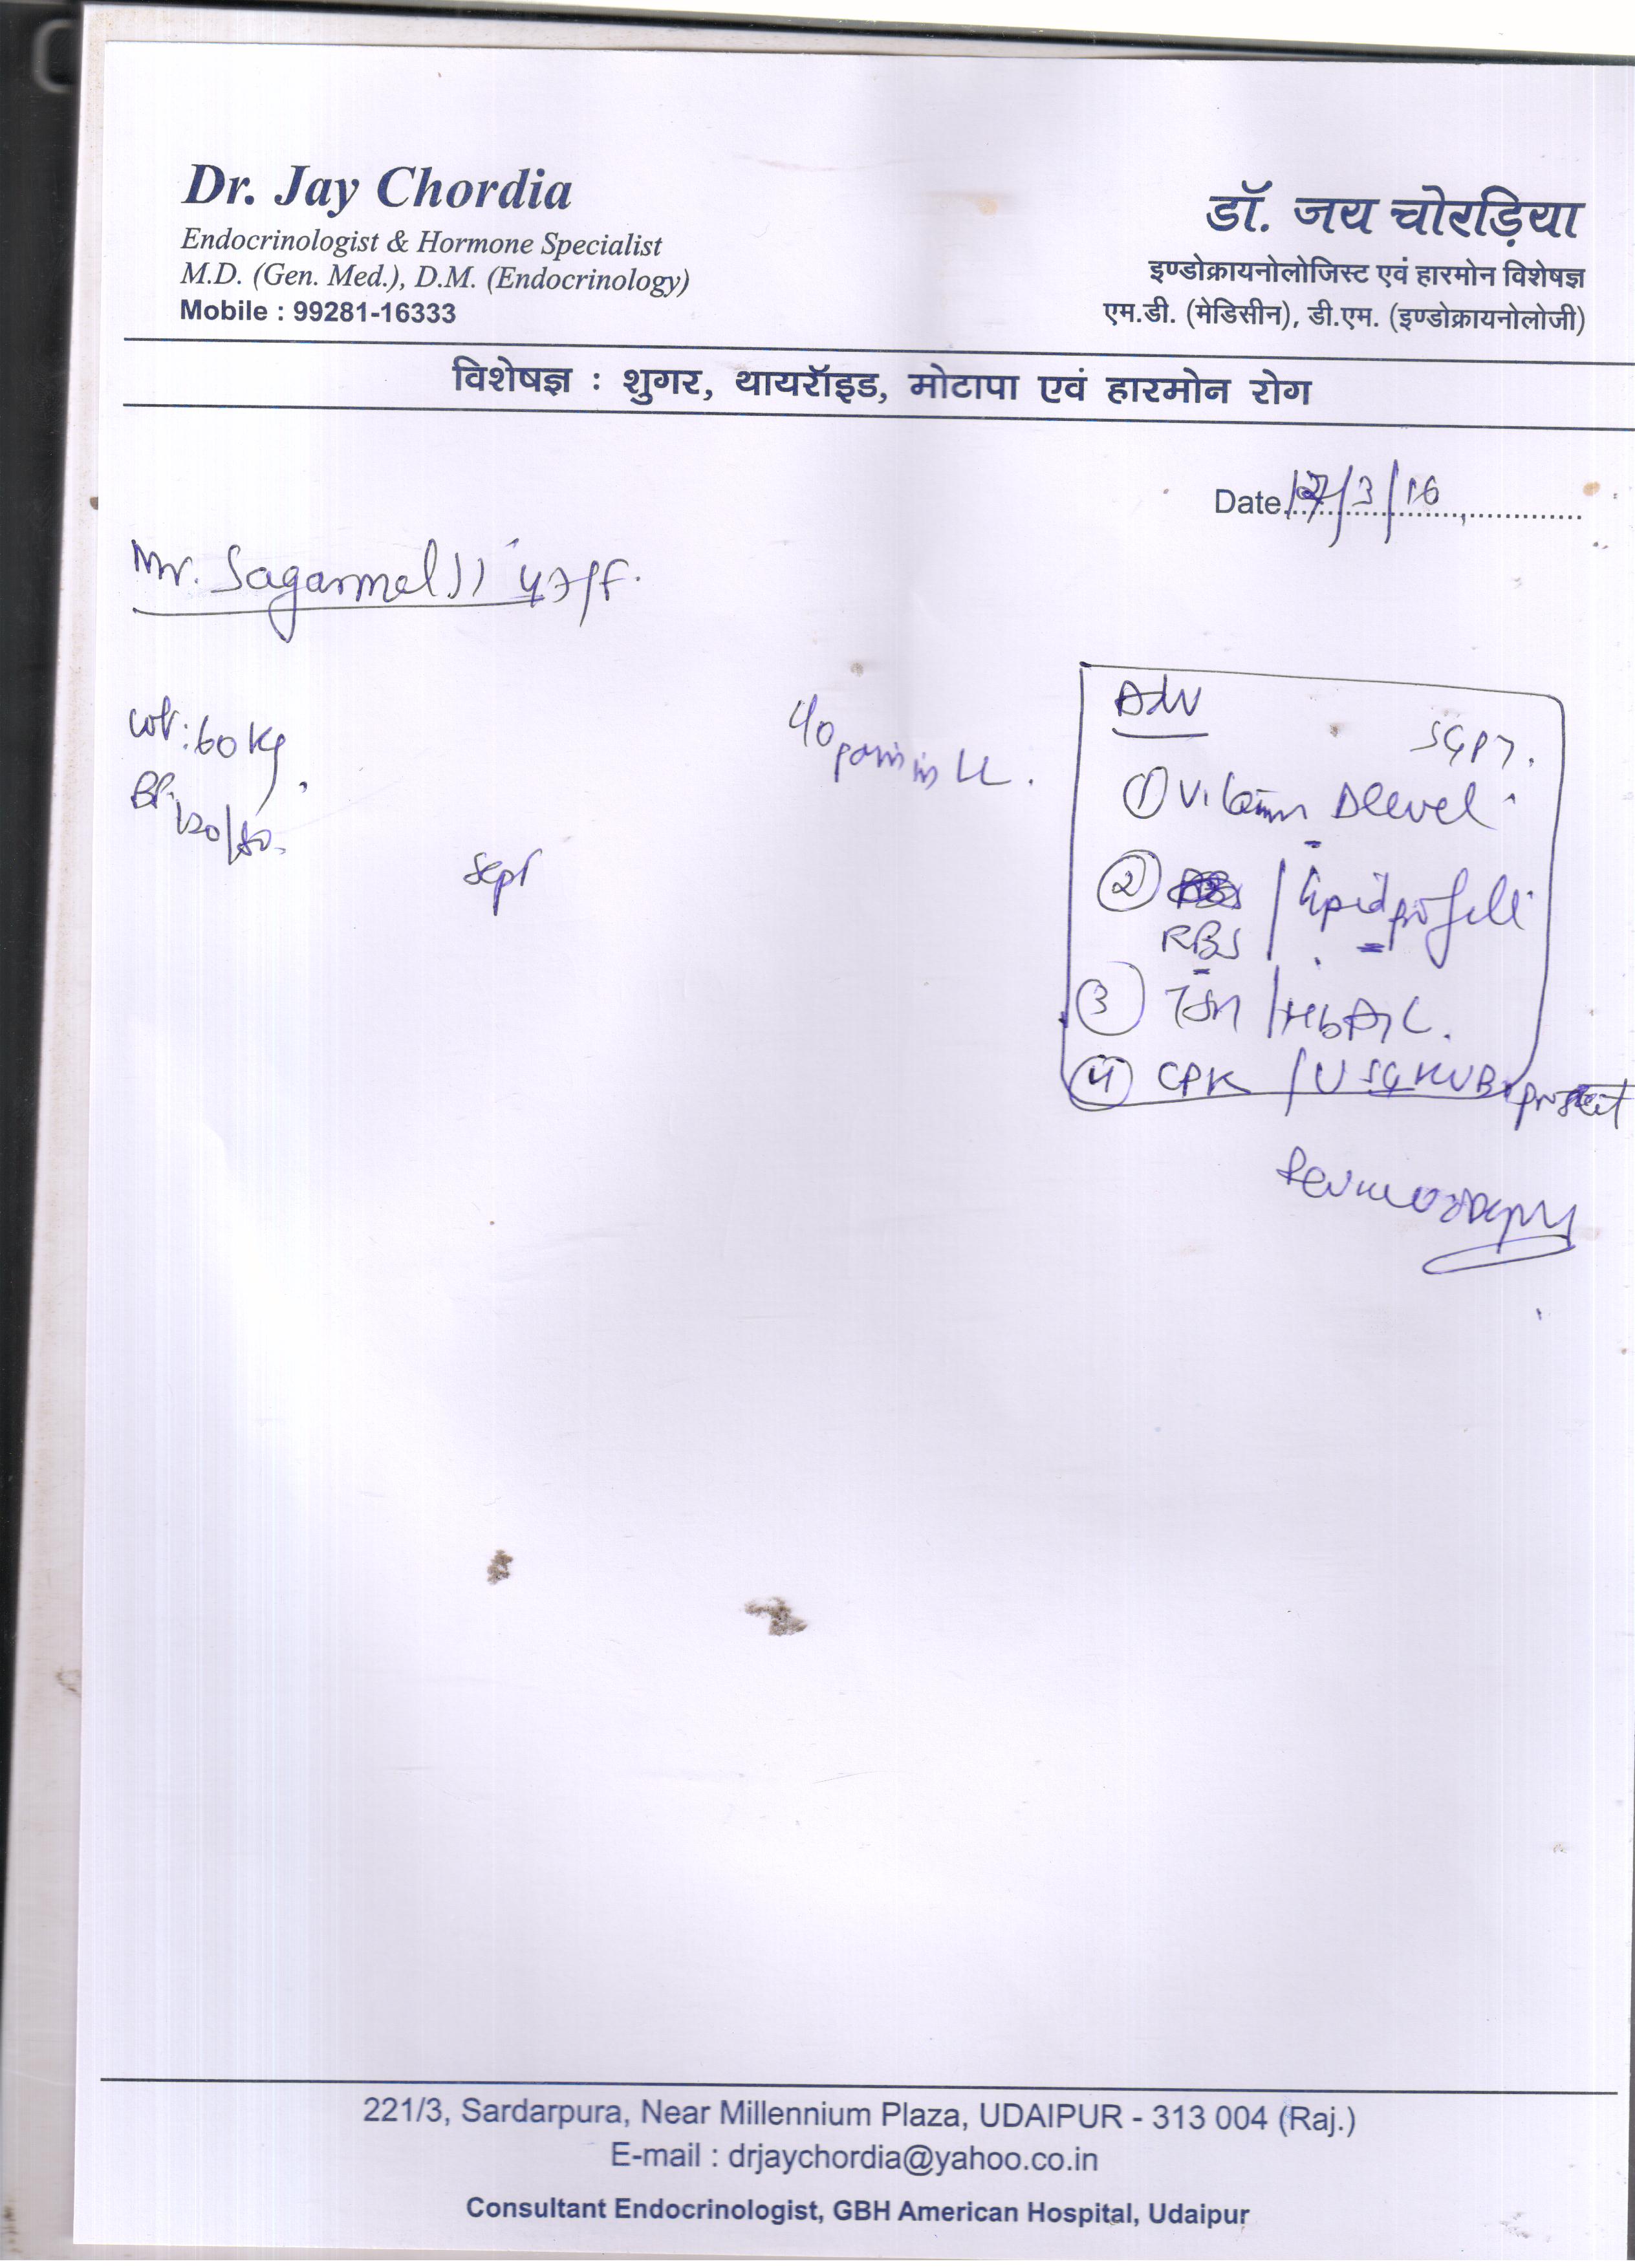 Dr. Jay Chordia
Endocrinologist & Hormone Specialist
M.D. (Gen. Med.), D.M. (Endocrinology)
Mobile : 99281-16333
डॉ. जय चोरड़िया
इण्डोक्रायनोलोजिस्ट एवं हारमोन विशेषज्ञ
एम.डी. (मेडिसीन), डी.एम. (इण्डोक्रायनोलोजी)
विशेषज्ञ : शुगर, थायरॉइड, मोटापा एवं हारमोन रोग
Date 12/3/16
Mr. Sagarmal JI
wt: 60 Kg.
BP: 120/80.
C/o pain in LL.
Adv
SGPT.
① Vitamin D level
② RBS / Lipid profile
③ TSH / HbA1C.
④ CPK / USG KUB + prostate
221/3, Sardarpura, Near Millennium Plaza, UDAIPUR - 313 004 (Raj.)
E-mail : drjaychordia@yahoo.co.in
Consultant Endocrinologist, GBH American Hospital, Udaipur